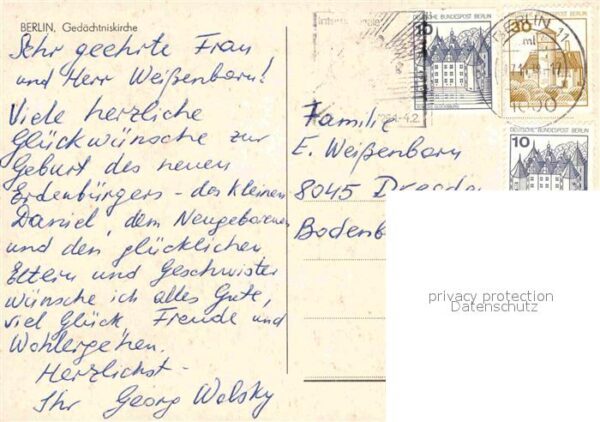 BERLIN, Gedächtniskirche
Sehr geehrte Frau
und Herr Weißenborn!
Viele herzliche
Glückwünsche zur
Geburt des neuen
Erdenbürgers - des kleinen
Daniel, dem Neugeborenen
und den glücklichen
Eltern und Geschwister
wünsche ich alles Gute,
viel Glück Freude und
Wohlergehen.
Herzlichst -
Ihr Georg Wolsky
10
DEUTSCHE BUNDESPOST BERLIN
30
BERLIN 11
1000
DEUTSCHE BUNDESPOST BERLIN
10
Familie
E. Weißenborn
8045 Dresde
Bodenb
privacy protection
Datenschutz